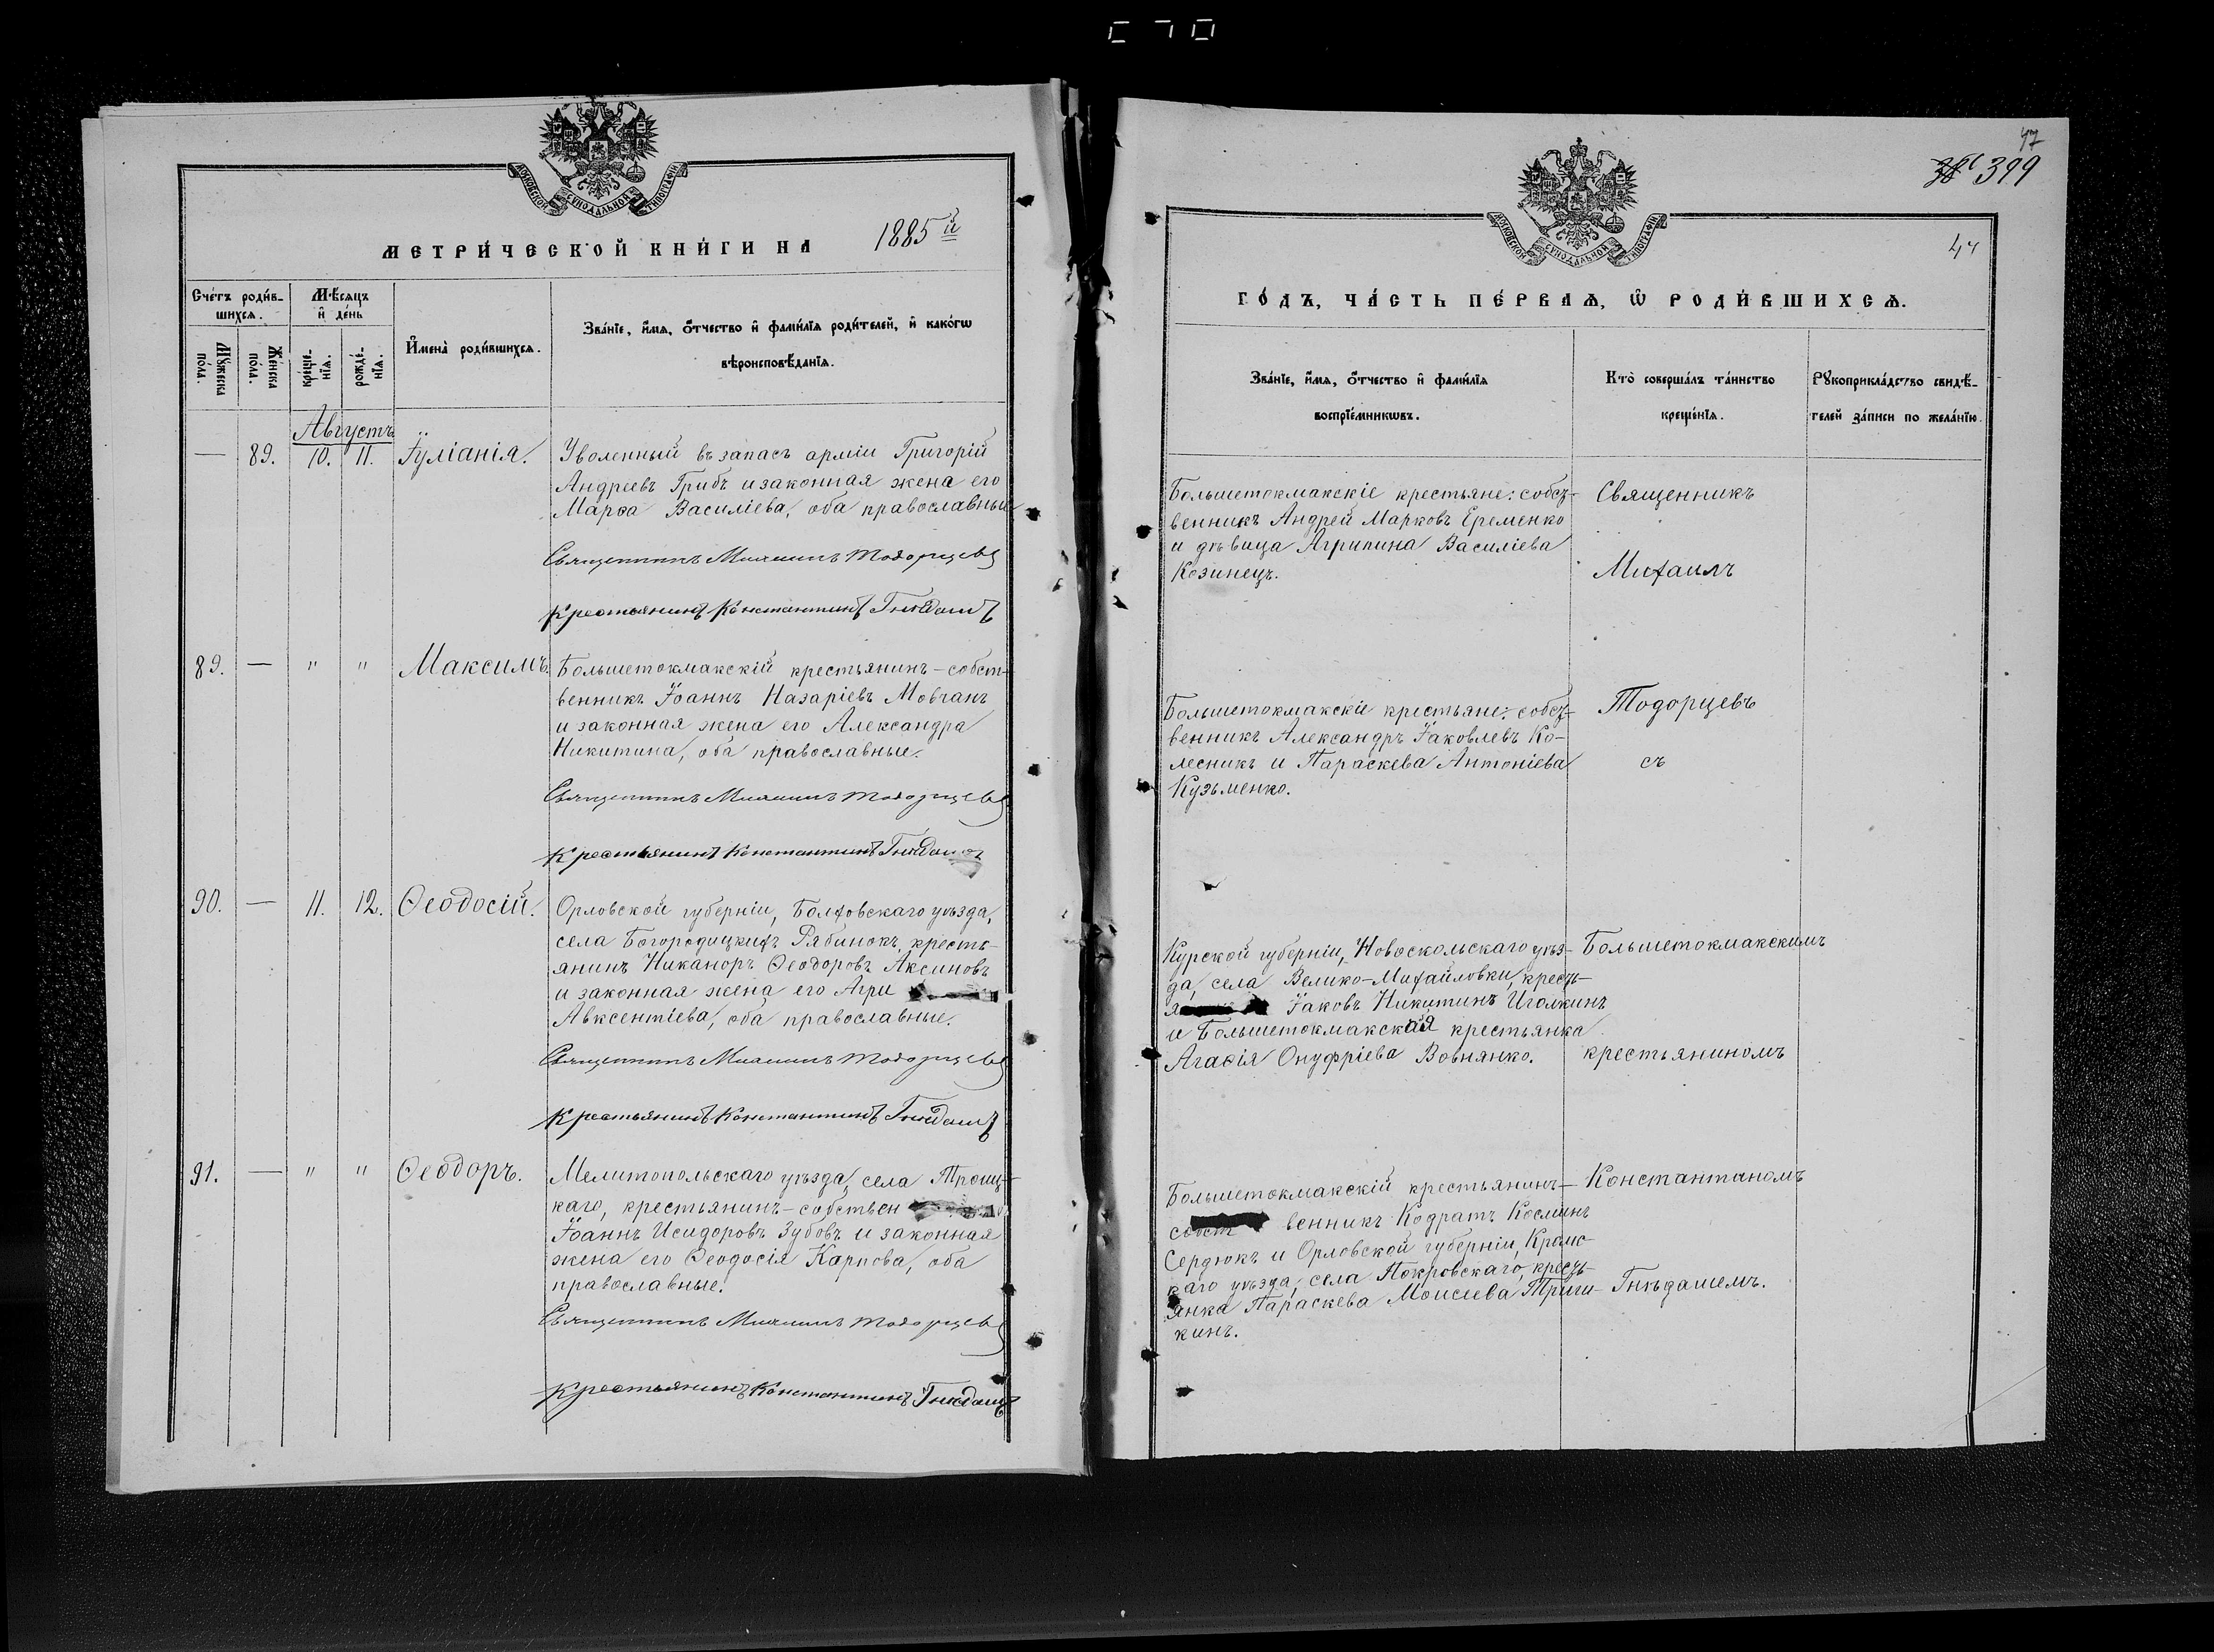 МОСКОВСКОЙ СѴНОДАЛЬНОЙ ТИПОГРАФІИ
МЕТРИ́ЧЕСКОЙ КНИ́ГИ НА 1885й
Сче́тъ роди́в-
шихсѧ.
Мѣ́сѧцъ
и҆ де́нь
Мꙋ́жеска
по́ла.
Же́нска
по́ла.
креще́-
нїѧ.
рожде́-
нїѧ.
И҆мена̀ роди́вшихсѧ.
Зва́нїе, и҆́мѧ, ѻ҆́тчество и҆ фами́лїѧ роди́телей, и҆ како́гѡ
вѣроисповѣ́данїѧ.
Августъ
— 89. 10. 11. Іуліанія.
Уволенный въ запасъ арміи Григорій
Андреевъ Грибъ и законная жена его
Марѳа Василіева, оба православные
Священникъ Михаилъ Тодорцевъ
Крестьянинъ Константинъ Гнѣдашъ
89. — " " Максимъ.
Большетокмакскій крестьянинъ-собст-
венникъ Іоаннъ Назаріевъ Мовчанъ
и законная жена его Александра
Никитина, оба православные.
Священникъ Михаилъ Тодорцевъ
Крестьянинъ Константинъ Гнѣдашъ
90. — 11. 12. Ѳеодосій.
Орловской губерніи, Болховскаго уѣзда,
села Богородицкихъ Рябинокъ, кресть-
янинъ Никаноръ Ѳеодоровъ Аксиновъ
и законная жена его Агри
Авксентіева, оба православные.
Священникъ Михаилъ Тодорцевъ
Крестьянинъ Константинъ Гнѣдашъ
91. — " " Ѳеодоръ.
Мелитопольскаго уѣзда, села Троиц-
каго, крестьянинъ-собствен
Іоаннъ Исидоровъ Зубовъ и законная
жена его Ѳеодосія Карпова, оба
православные.
Священникъ Михаилъ Тодорцевъ
Крестьянинъ Константинъ Гнѣдашъ
47
399
МОСКОВСКОЙ СѴНОДАЛЬНОЙ ТИПОГРАФІИ
ГО́ДЪ, ЧА́СТЬ ПЕ́РВАѦ, Ѡ҆ РОДИ́ВШИХСѦ.
Зва́нїе, и҆́мѧ, ѻ҆́тчество и҆ фами́лїѧ
воспрїе́мникѡвъ.
Кто̀ соверша́лъ та́инство
креще́нїѧ.
Рꙋкоприкла́дство свидѣ́-
телей за́писи по жела́нїю.
Большетокмакскіе крестьяне: собст-
венникъ Андрей Марковъ Еременко
и дѣвица Агрипина Василіева
Козинецъ.
Священникъ
Михаилъ
Большетокмакскіе крестьяне: собст-
венникъ Александръ Іаковлевъ Ко-
лесникъ и Параскева Антоніева
Кузьменко.
Тодорцевъ
съ
Курской губерніи, Новоскольскаго уѣз-
да, села Велико-Михайловки, кресть-
я Іаковъ Никитинъ Иголкинъ
и Большетокмакская крестьянка
Агаѳія Онуфріева Вовнянко.
Большетокмакскимъ
крестьяниномъ
Большетокмакскій крестьянинъ-
собст венникъ Кодратъ Косминъ
Сердюкъ и Орловской губерніи, Крамс-
каго уѣзда, села Покровскаго, кресть-
янка Параскева Моисеева Триш-
кинъ.
Константиномъ
Гнѣдашемъ.